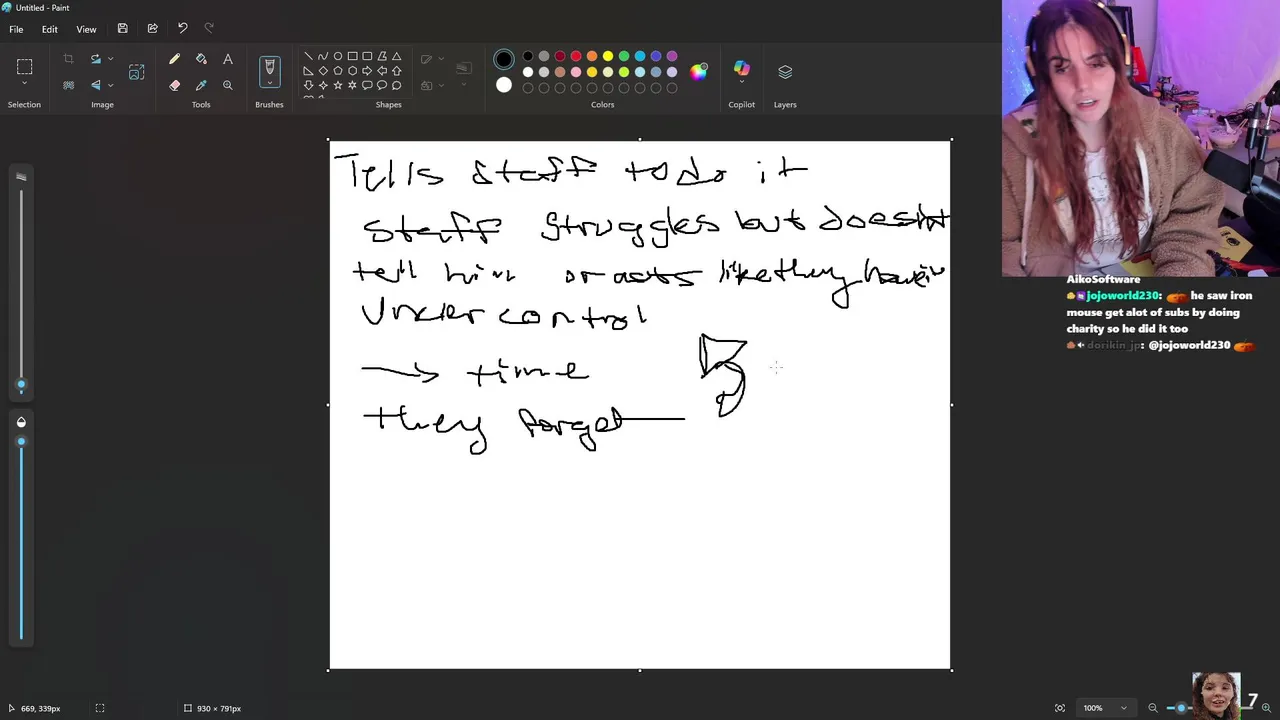 Untitled - Paint
File Edit View
Selection Image Tools Brushes Shapes Colors Copilot Layers
Tells staff to do it
staff struggles but doesn't
tell him or acts like they have it
Under control
→ time
they forget
AikoSoftware
jojoworld230: he saw iron
mouse get alot of subs by doing
charity so he did it too
dorikin_jp: @jojoworld230
669, 339px 930 × 791px 100% 7